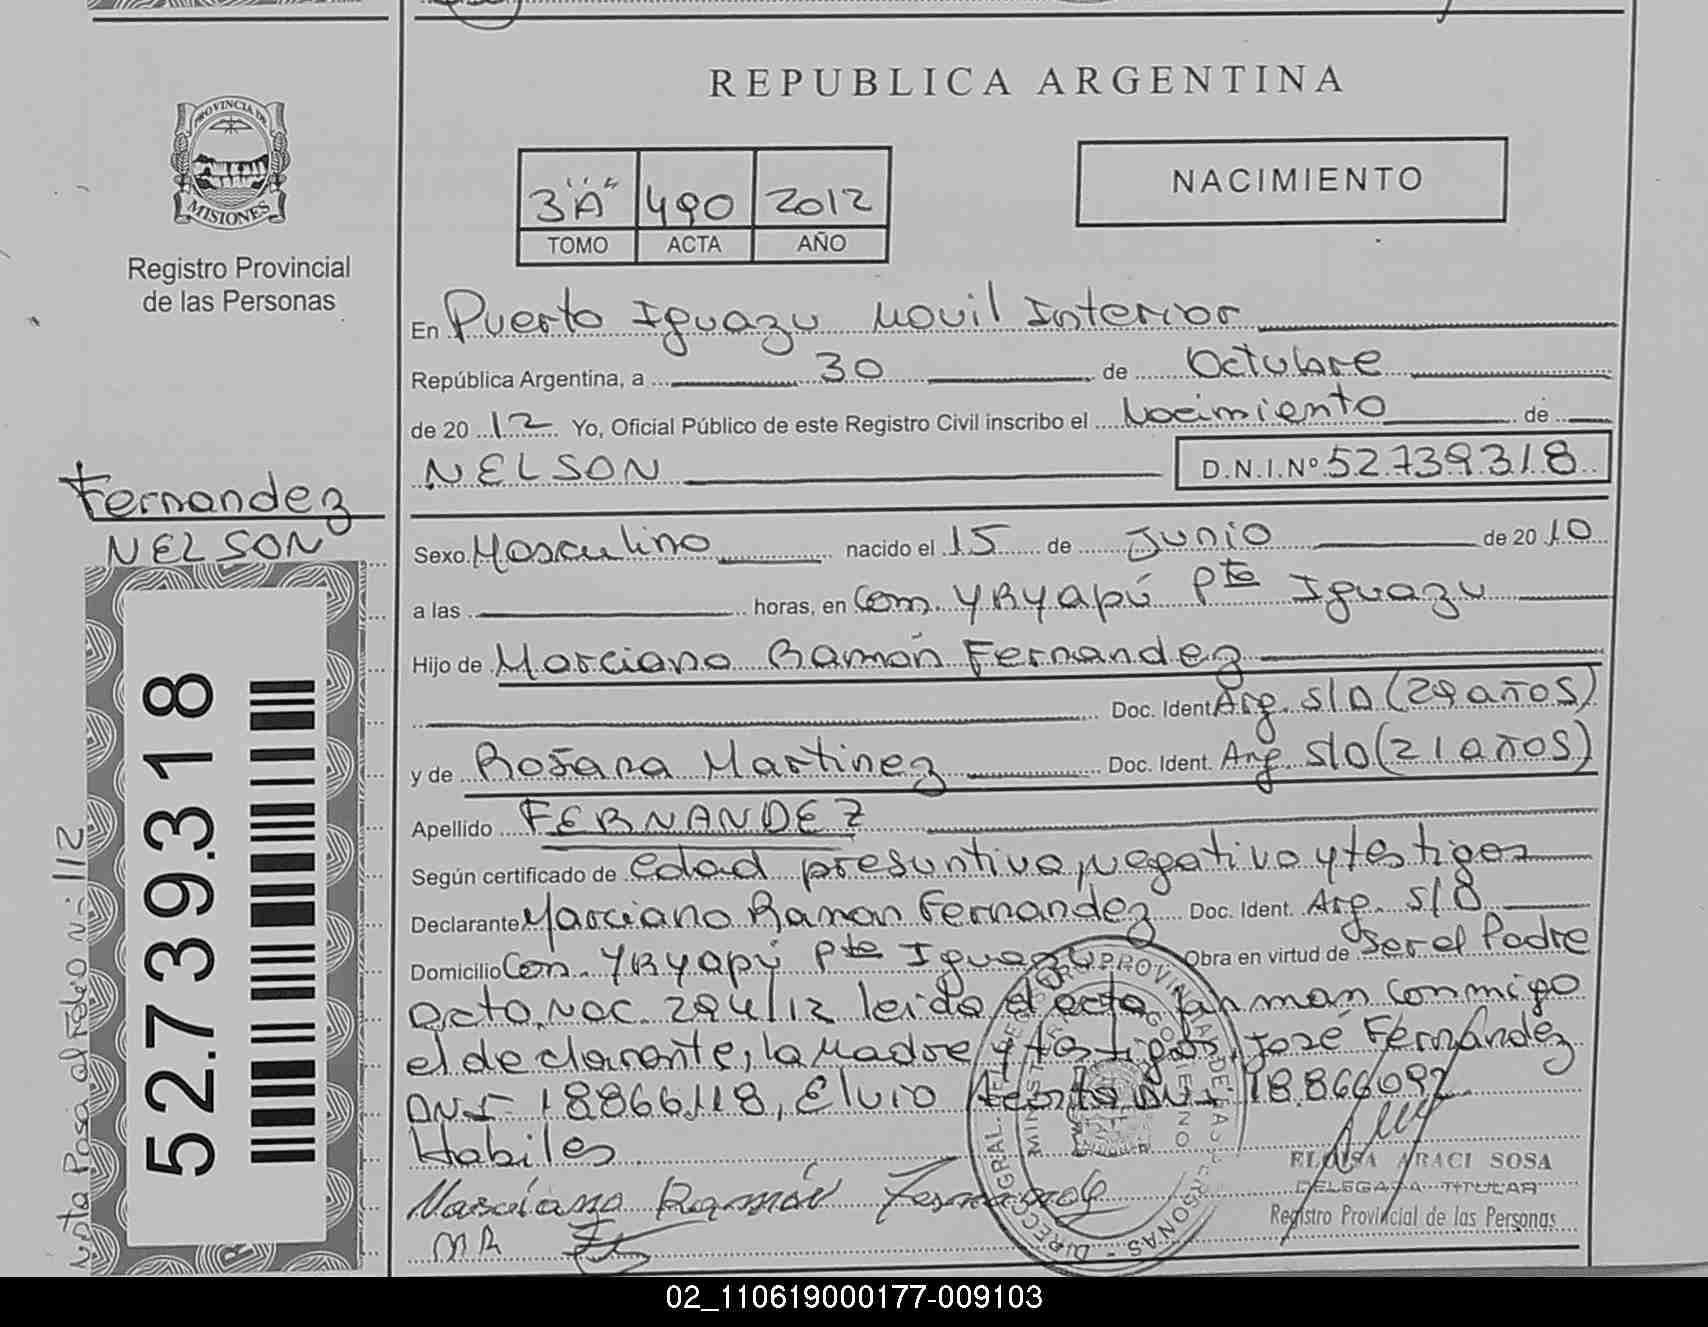 REPUBLICA ARGENTINA
PROVINCIA DE
MISIONES
Registro Provincial
de las Personas
3 "A" 490 2012
TOMO ACTA AÑO
NACIMIENTO
En Puerto Iguazu Movil Interior
República Argentina, a 30 de Octubre
de 2012 Yo, Oficial Público de este Registro Civil inscribo el Nacimiento de
NELSON D.N.I.Nº 52.739.318
Fernandez
NELSON
Sexo Masculino nacido el 15 de Junio de 2010
a las horas, en Com. YRyapú Pto Iguazu
Hijo de Marciano Ramón Fernandez
Doc. Ident Arg. S/D (29 años)
y de Rosana Martinez Doc. Ident. Arg. S/D (21 años)
Apellido FERNANDEZ
Según certificado de edad presuntiva, negativo y testigos
Declarante Marciano Ramon Fernandez Doc. Ident. Arg. S/D
Domicilio Com. YRyapú Pto Iguazu Obra en virtud de Ser el Padre
Acta Nac. 294/12 leida el acta firman conmigo
el declarante, la Madre y testigos, José Fernández
DNI 18866118, Elvio DNI 18.866092
Habiles
Marciano Ramón Fernandez
MR
ELOISA ARACI SOSA
DELEGADA TITULAR
Registro Provincial de las Personas
52.739.318
1112
02_110619000177-009103